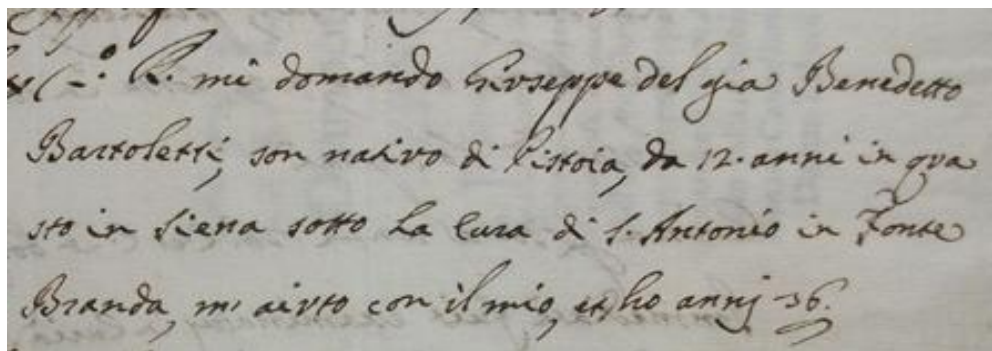 R. mi domando Giuseppe del gia Benedetto
Bartoletti, son nativo di Pistoia, da 12. anni in qua
sto in Siena sotto la Cura di S. Antonio in Fonte
Branda, mi aiuto con il mio, et ho annj 36.